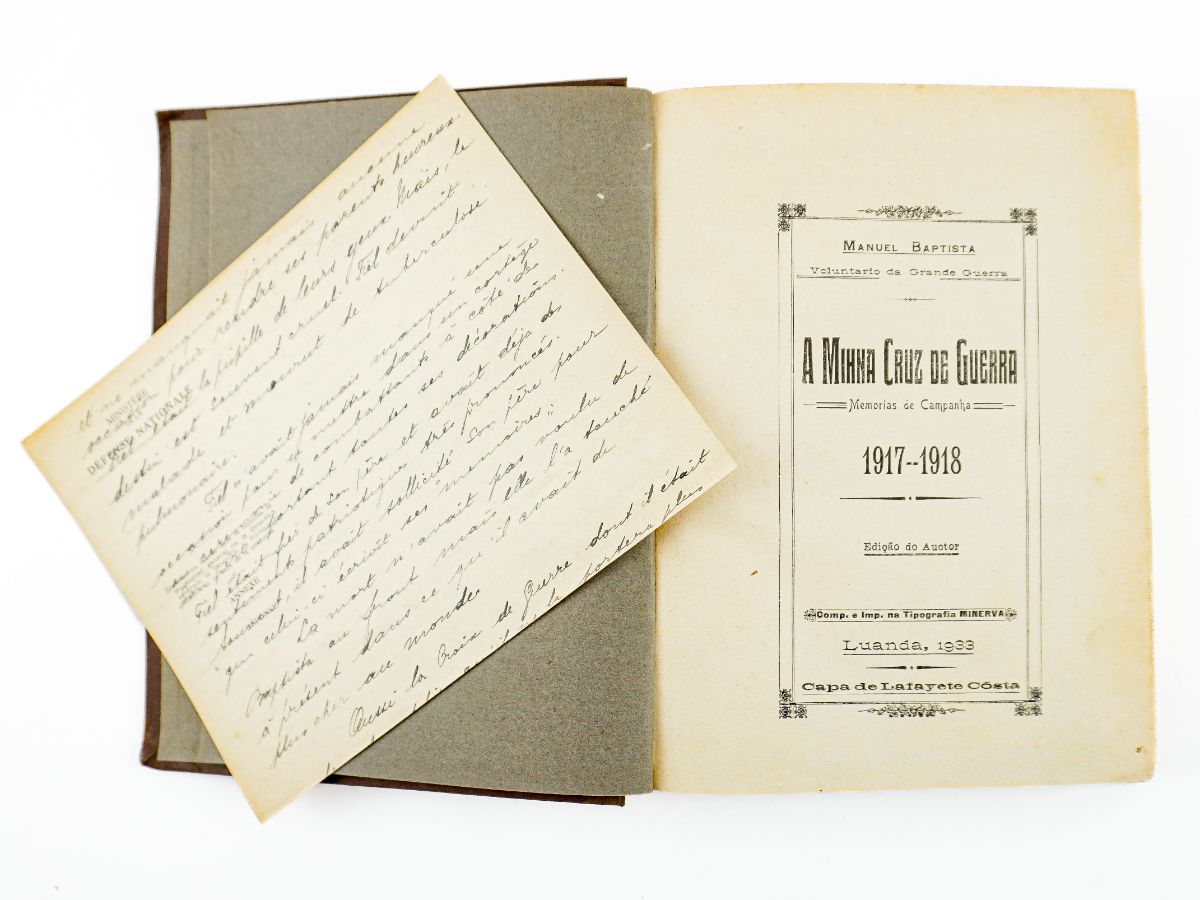 et ne manquait jamais aucune
occasion pour rendre ses parents heureux.
Fiel était la pupille de leurs yeux. Mais, le
destin est souvent cruel. Fiel devint
malade et mourut de tuberculose
pulmonaire.
Fiel n'avait jamais manqué une
occasion pour se mettre dans un cortège
ou cérémonie de combattants à côté de
son père portant toutes ses décorations.
Fiel était fier de son père et avait déjà des
sentiments patriotiques très prononcés.
Souvent, il avait sollicité son père pour
que celui-ci écrivit ses "mémoires".
La mort n'avait pas voulu de
Baptista au front mais elle l'a touché
à présent dans ce qu'il avait de
plus cher au monde.
Aussi la Croix de Guerre dont il était
portera plus
MINISTÈRE
DEFENSE NATIONALE
ANNEXE
MANUEL BAPTISTA
Voluntario da Grande Guerra
A MIHNA CRUZ DE GUERRA
Memorias de Campanha
1917--1918
Edição do Auotor
Comp. e Imp. na Tipografia MINERVA
Luanda, 1933
Capa de Lafayete Cósta